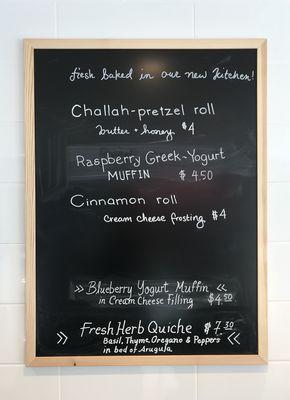 fresh baked in our new Kitchen!
Challah-pretzel roll
butter + honey $4
Raspberry Greek-Yogurt
MUFFIN $4.50
Cinnamon roll
cream cheese frosting $4
>> Blueberry Yogurt Muffin <<
in Cream Cheese Filling $4.50
Fresh Herb Quiche $7.30
>> Basil, Thyme, Oregano & Peppers <<
in bed of Arugula